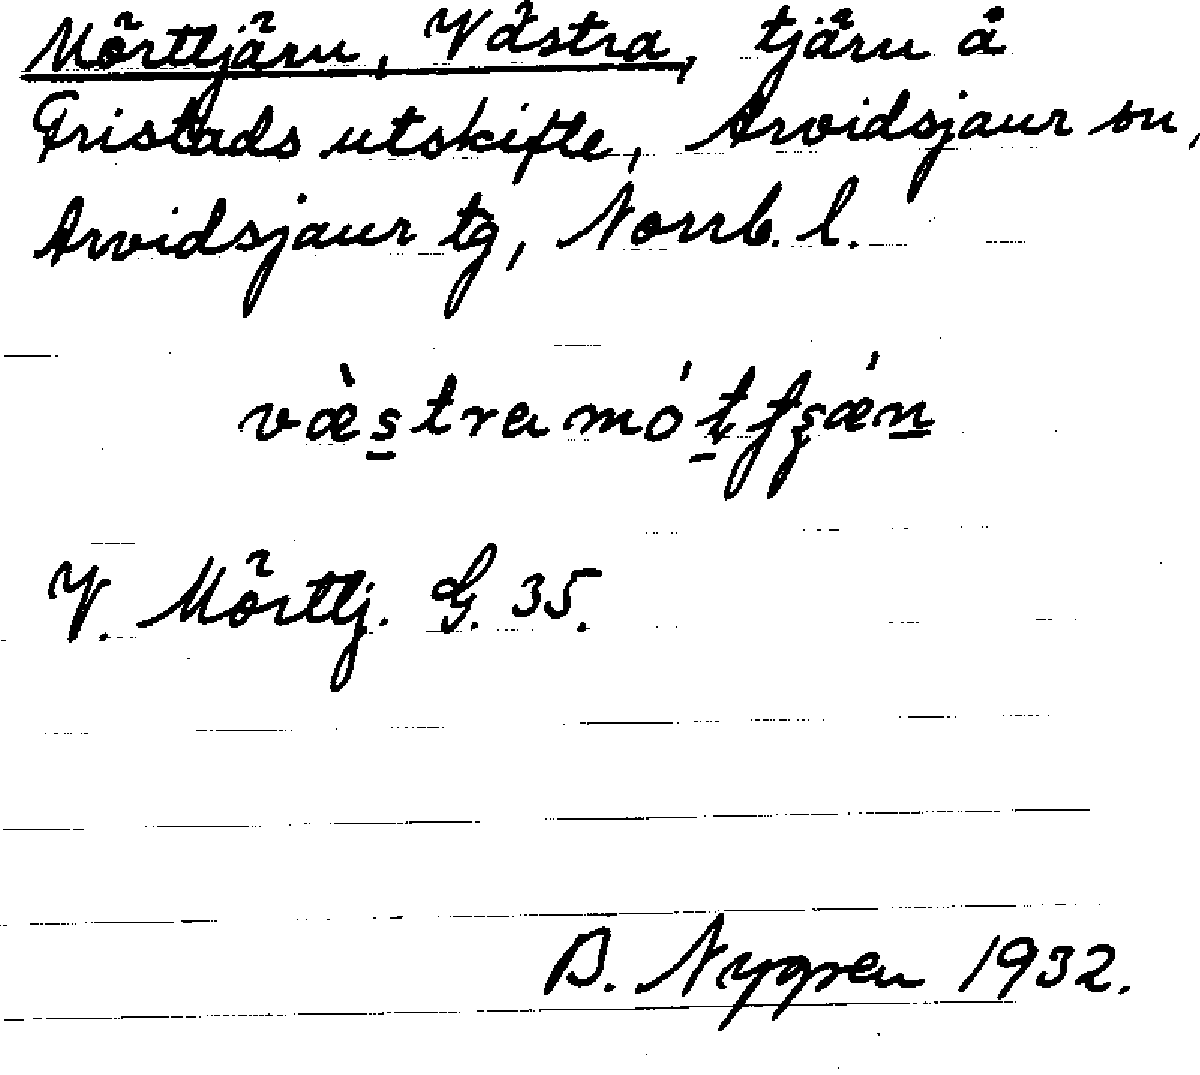 Mörttjärn, Västra, tjärn å
Fristads utskifte, Arvidsjaur sn,
Arvidsjaur tg, Norrb. l.
V. Mörttj. G. 35.
B. Nygren 1932.